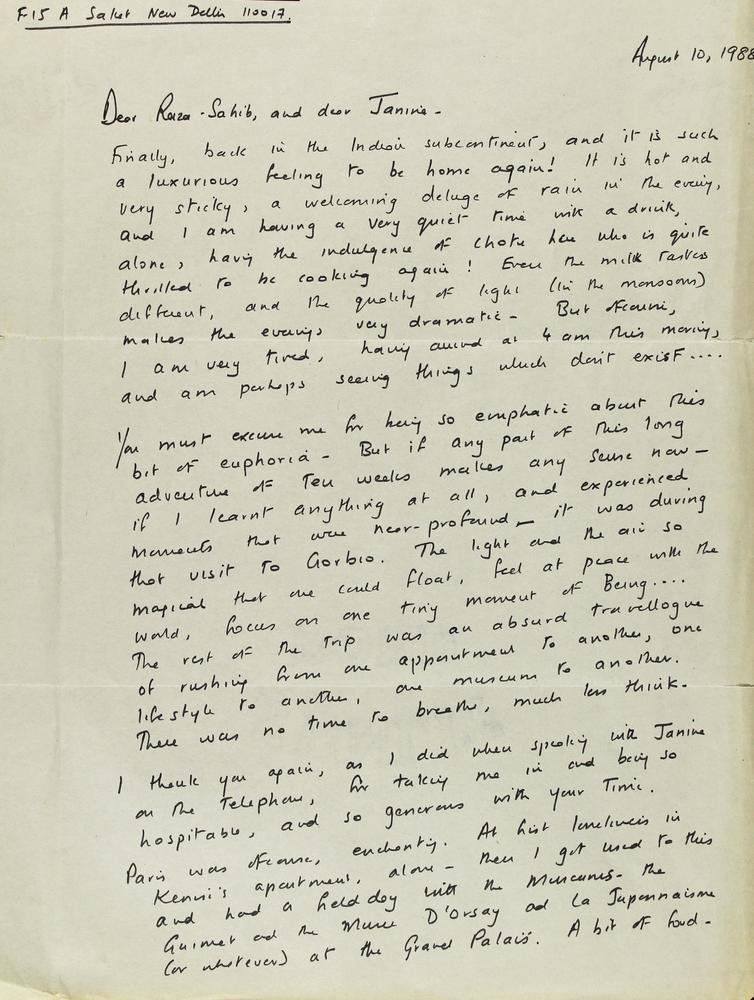 F15 A Saket New Delhi 110017.
August 10, 1988
Dear Raza-Sahib, and dear Janine -
Finally, back in the Indian subcontinent, and it is such
a luxurious feeling to be home again! It is hot and
very sticky, a welcoming deluge of rain in the evening,
and I am having a very quiet time with a drink,
alone, having the indulgence of Chote here who is quite
thrilled to be cooking again! Even the milk tastes
different, and the quality of light (in the monsoons)
makes the evenings very dramatic - But ofcourse,
I am very tired, having arrived at 4 am this morning,
and am perhaps seeing things which don't exist....
You must excuse me for being so emphatic about this
bit of euphoria - But if any part of this long
adventure of Ten weeks makes any sense now -
if I learnt anything at all, and experienced
moments that were near-profound - it was during
that visit to Gorbio. The light and the air so
magical that one could float, feel at peace with the
world, focus on one tiny moment of Being....
The rest of the trip was an absurd travellogue
of rushing from one appointment to another, one
lifestyle to another, one museum to another.
There was no time to breathe, much less think.
I thank you again, as I did when speaking with Janine
on the Telephone, for taking me in and being so
hospitable, and so generous with your Time.
Paris was ofcourse, enchanting. At first loneliness in
Kenni's apartment, alone - then I got used to this
and had a field day with the Museums - the
Guimet and the Musee D'Orsay and La Japonnaisme
(or whatever) at the Grand Palais. A bit of food -